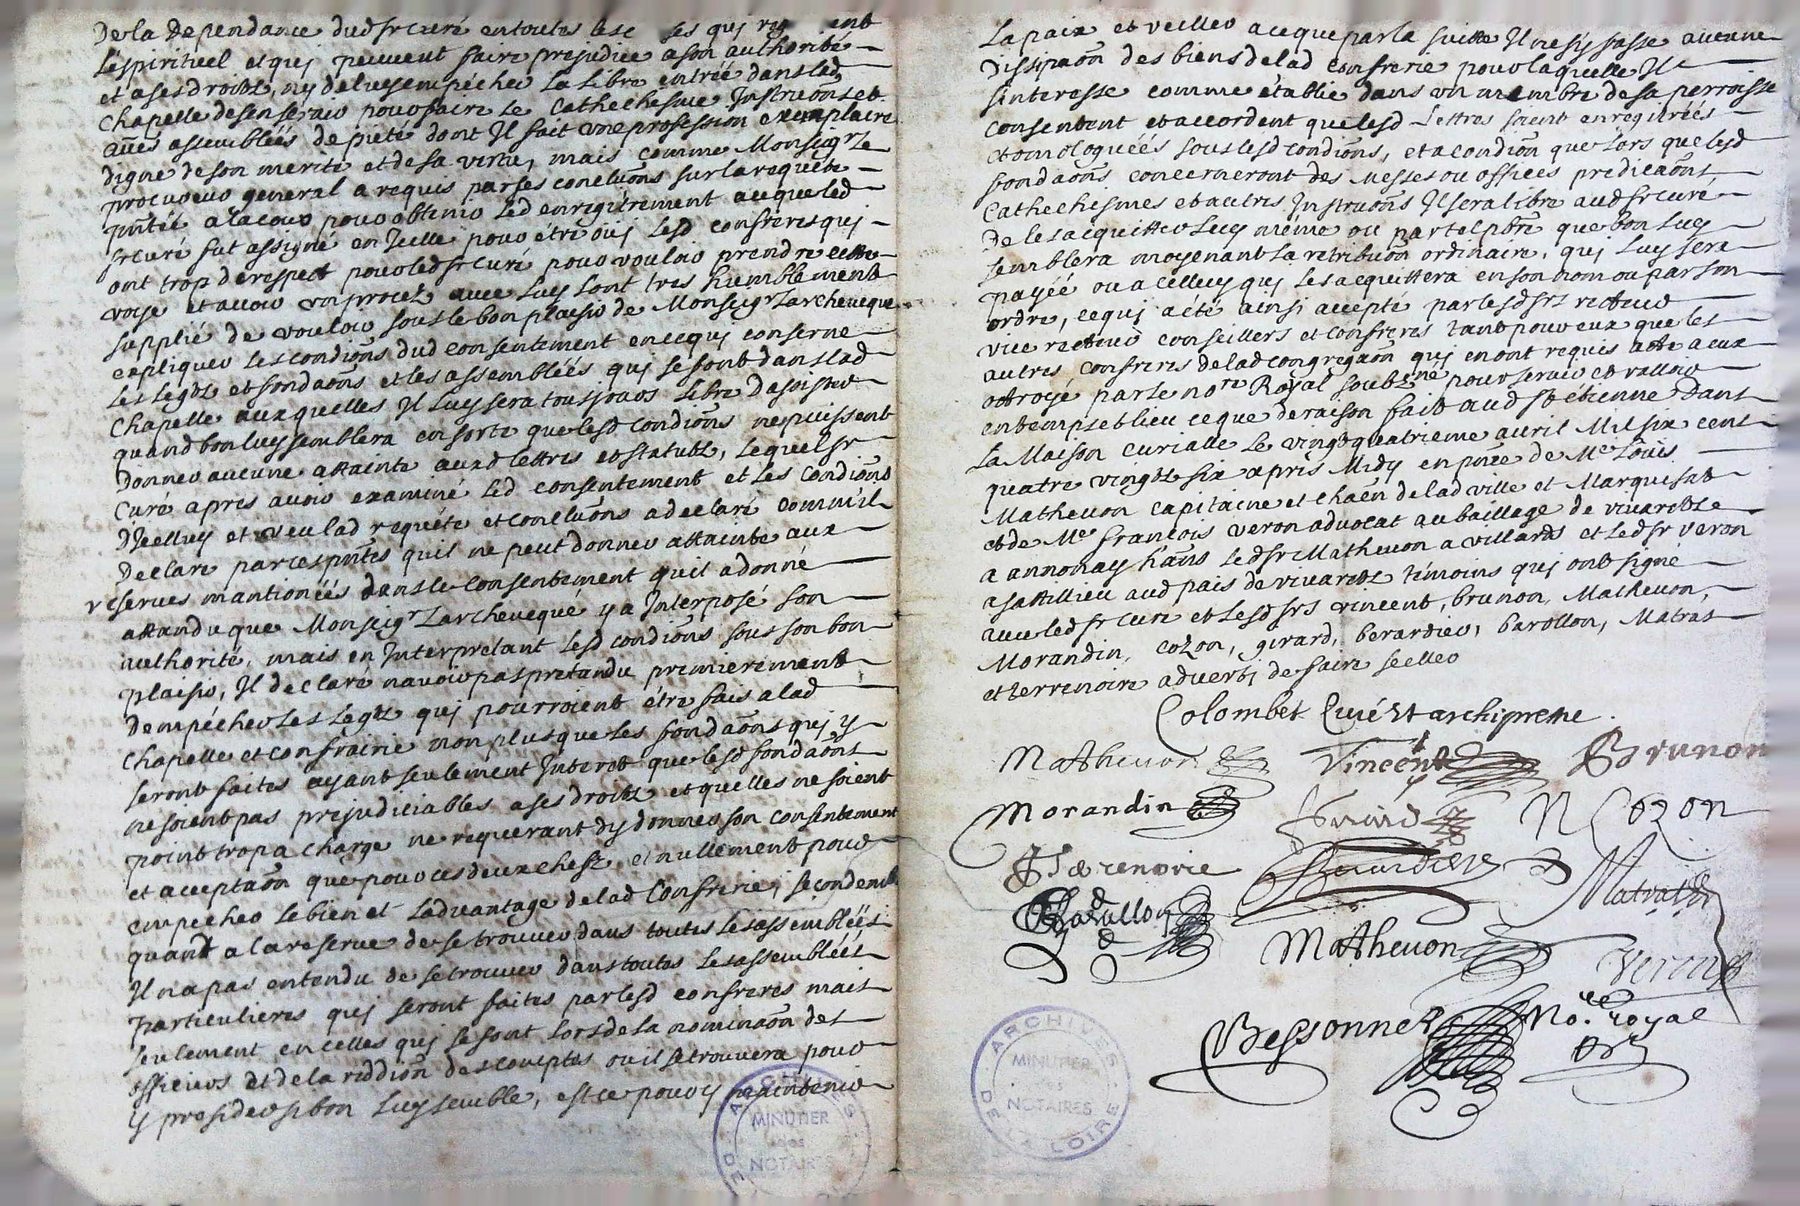 De la dependance dud sr curé en toutes les c ses qui reg ent
Lespirituel et qui peuvent faire prejudice a son authorité
et a ses droitz, ny de luy empécher la libre entrée dans lad
chapelle de s'en servir pour faire le Cathechisme Instruons et
aues assembléés de pieté dont Il fait une profession exemplaire
digne de son merite et de sa vertu, mais comme Monsigr Le
procureur general a requis par ses concluons sur la requéte
pntée a la cour pour obtenir led enregitrement a ce que led
sr curé fut assigné en Icelle pour étre oui Lesd confreres qui
ont trop de respect pour led sr curé pour vouloir prendre cette
voye et avoir un procez avec Luy sont tres humblement
supplié de vouloir sous le bon plaisir de Monseigr Larcheveque
expliquer les condions dud consentement en ce qui conserne
Les legtz et fondaons et les assembléés qui se font dans lad
chapelle auxquelles Il luy sera tousjours libre dassister
quand bon luy semblera en sorte que lesd condions ne puissent
donner aucune attainte auxd lettres et statutz, Lequel sr
Curé apres avoir examiné led consentement et les condions
d'Icelluy et veu lad requéte et concluons a declaré comm'il
Declare par ces pntes quil ne peut donner attainte aux
reserves mantionéés dans le consentement quil a donné
attandu que Monseigr Larchevequé y a Interposé son
authorité, mais en Interpretant lesd condions sous son bon
plaisir, Il declare n'avoir pas pretandu premierement
Dempécher les legtz qui pourroient étre fais a lad
chapelle et confrairie non plus que les fondaons qui y
seront faites ayant seulement Interet que lesd fondaons
ne soient pas prejudiciables a ses droitz et quelles ne soient
point trop a charge ne requerant dy donner son consentement
et aceptaon que pour ces deux chefz et nullement pour
empecher le bien et Ladvantage de lad Confrerie, secondemt
quant a la reserve de se trouver dans toutes les assembléés
Il n'a pas entendu de se trouver dans toutes Les assembléés
particulieres qui seront faites par lesd confreres mais
seulement en celles qui se font Lors de la nominaon des
officiers et de la reddion des comptes ou il se trouvera pour
y presider si bon Luy semble, est ce pour y maintenir
La paix et veiller a ce que par la suitte Il ne s'y fasse aucune
Dissipaon des biens de lad confrerie pour laquelle Il
s'interesse comme établie dans un membre de sa perroisse
consentent et accordent que lesd Lettres soint enregitréés
et omologuéés sous lesd condions, et a condion que Lors que lesd
fondaons concerneront des Messes ou offices predicaons
Cathechismes et autres Instruons Il sera libre aud sr curé
de les acquitter Luy méme ou par tel pbre que bon Luy
semblera moyenant La retribuon ordinaire, qui Luy sera
payée ou a celluy qui Les acquittera en son nom ou par son
ordre, ce qui a été ainsi accepté par lesd srs recteur
vice recteur conseillers et confreres tant pour eux que les
autres confreres de lad congregaon qui en ont requis acte a eux
octroyé par le nore Royal soubzné pour servir et valloir
en temps et lieu ce que de raison fait aud st étienne dans
La Maison curialle Le vingt quatrieme avril Mil six cent
quatre vingtz six apres Midy en pnce de Me Loüis
Mathevon capitaine et chaen de lad ville et Marquisat
et de Me François veron advocat au baillage de vivaretz
a annonay hans led sr Mathevon a villards et led sr veron
a satillieu aud pais de vivaretz témoins qui ont signé
avec led sr curé et lesd srs vincent, brunon, Mathevon,
Morandin, cozon, girard, berardier, barollon, Matras
et terrenoire adverti de faire sceller
Colombet Curé et archiprestre.
Mathevon Vincent Brunon
Morandin Girard N Cozon
Terrenoire Berardier Matras
Barallon
Mathevon Veron
Bessonnet No.re royal
ARCHIVES DE LA LOIRE
MINUTIER
DES
NOTAIRES
MINUTIER
DES
NOTAIRES